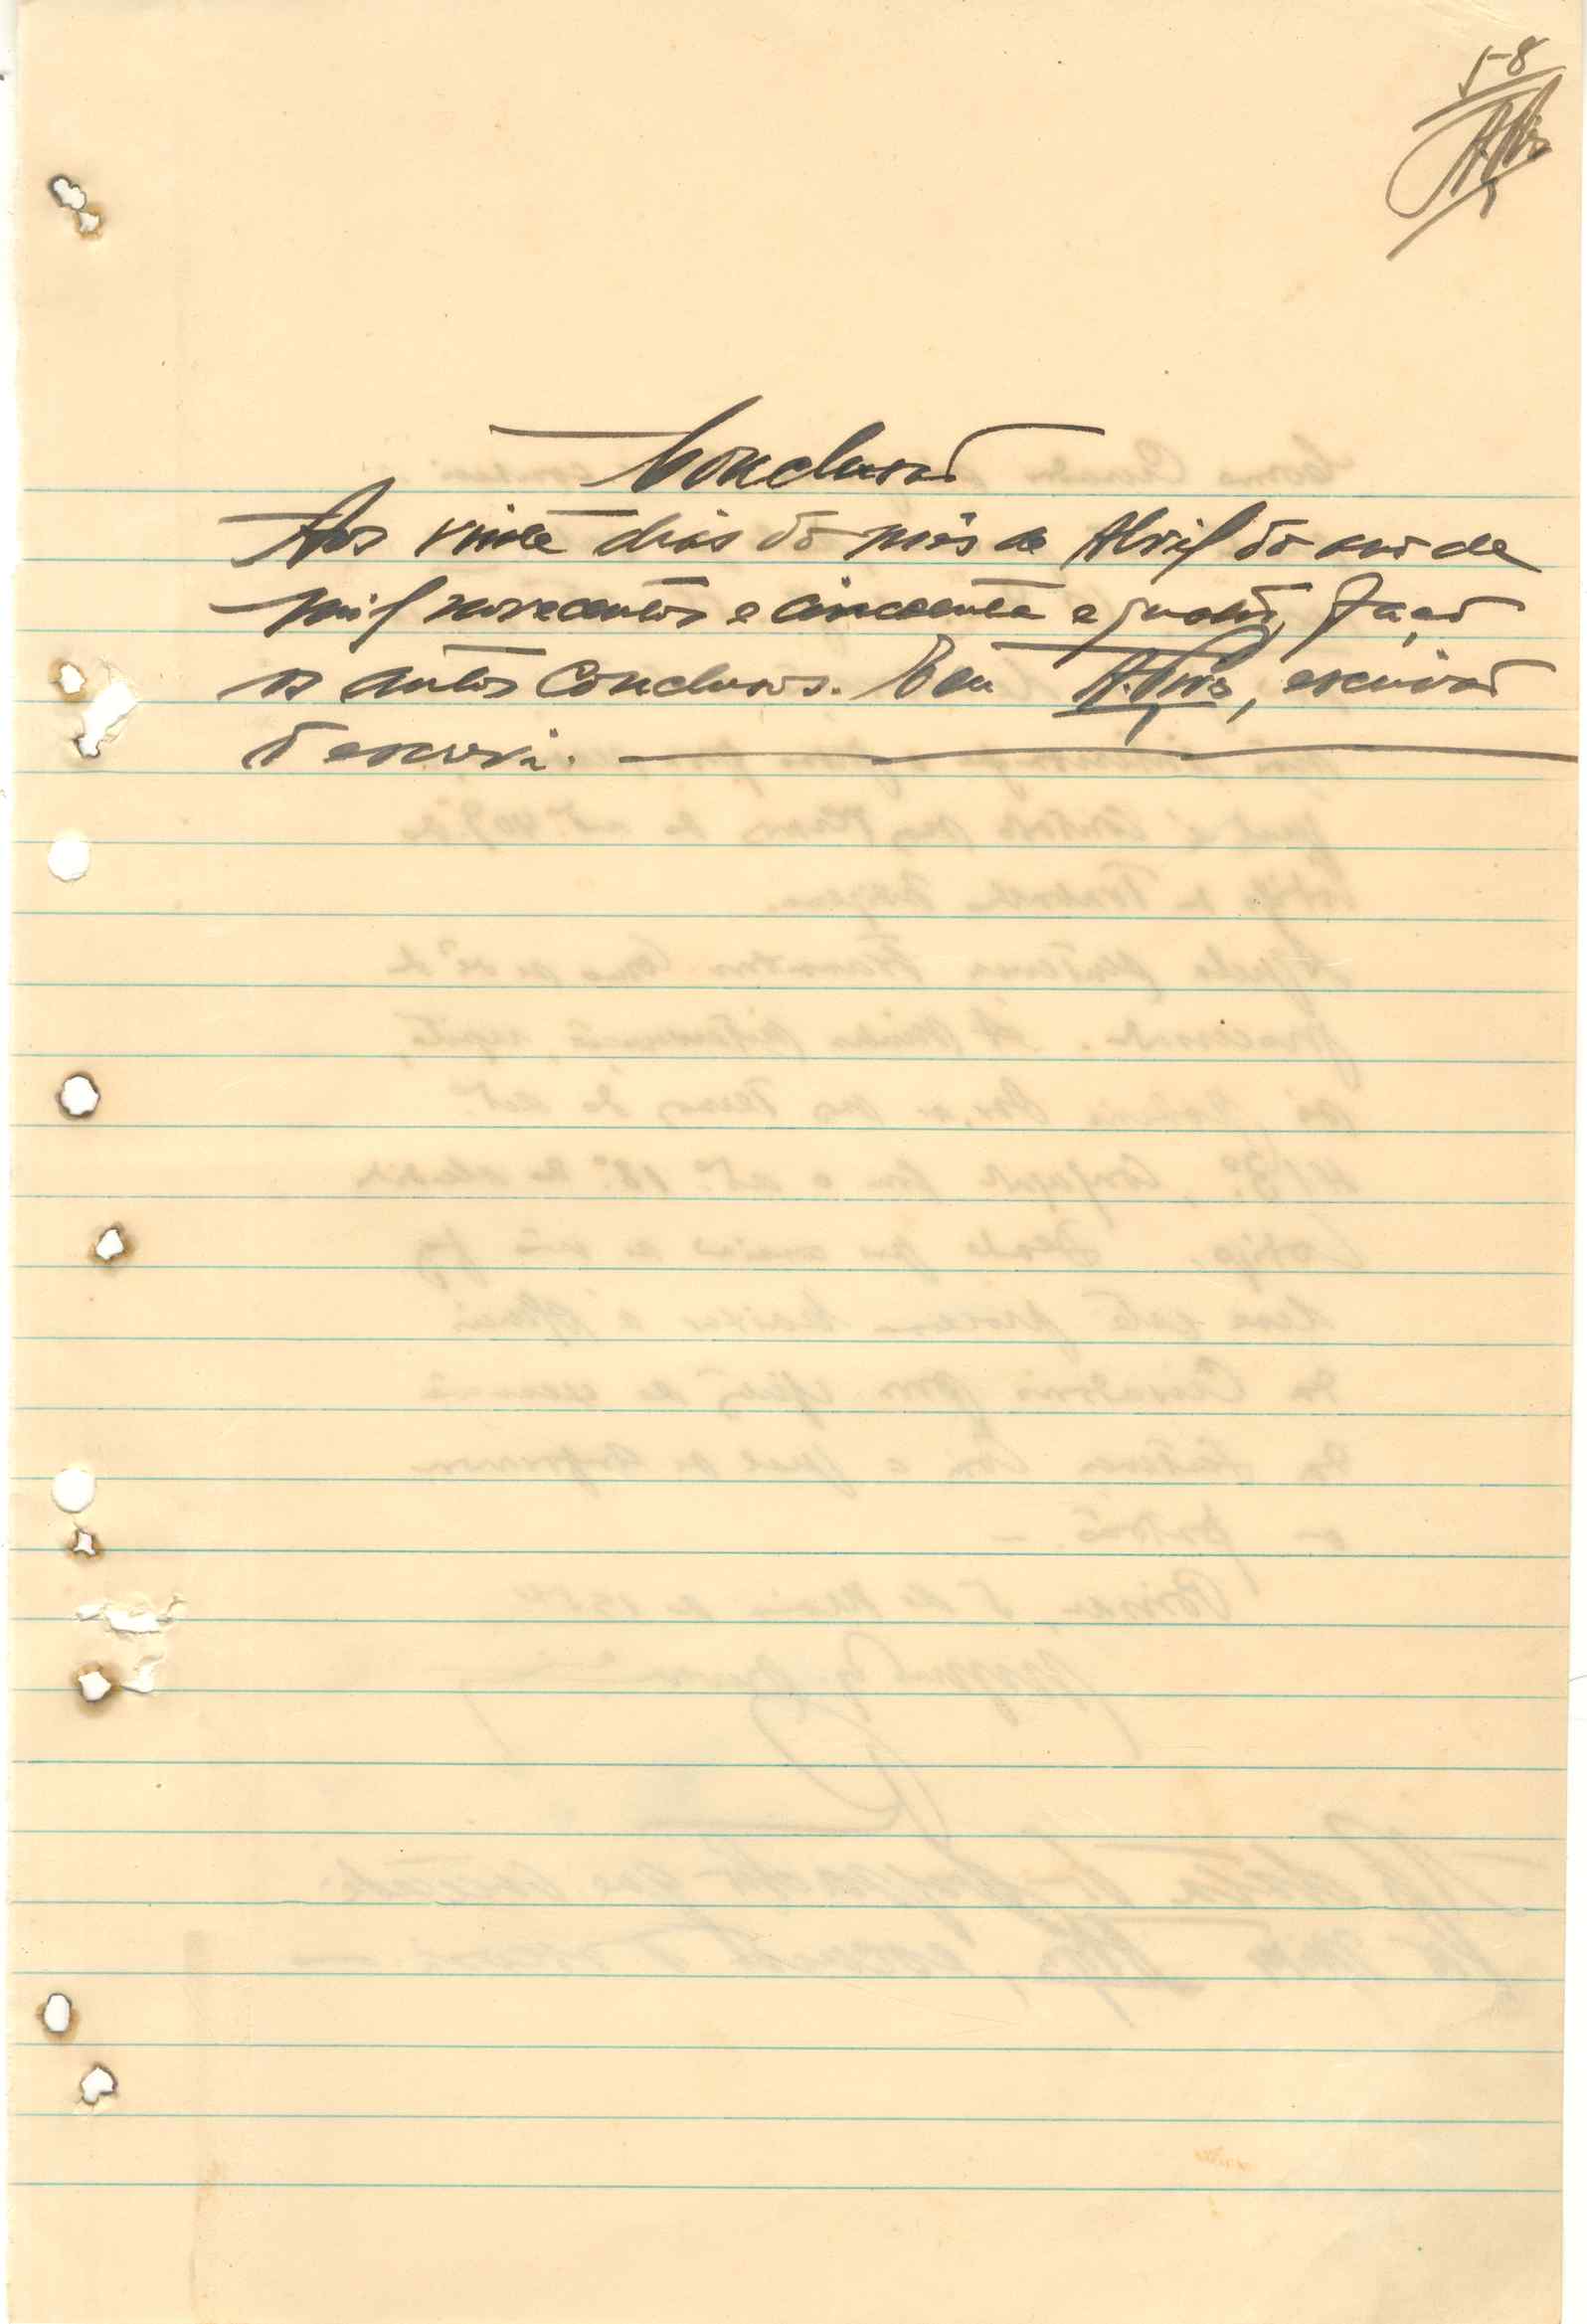 58
Conclusão
Aos vinte dias do mês de Abril do ano de
mil novecentos e cincoenta e quatro, faço
os autos conclusos. E eu, escrivão
o escrevi.